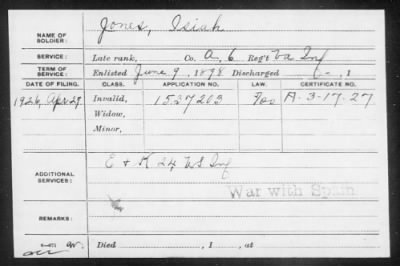 NAME OF SOLDIER: Jones, Isiah
SERVICE: Late rank, Co. A, 6 Reg't Va Inf
TERM OF SERVICE: Enlisted June 9, 1898 Discharged , 1
DATE OF FILING. CLASS. APPLICATION NO. LAW. CERTIFICATE NO.
1926, Apr 29 Invalid, 1537203 A-3-17-27
Widow,
Minor,
ADDITIONAL SERVICES: E & K 24 US Inf
War with Spain
REMARKS:
Died , 1 , at